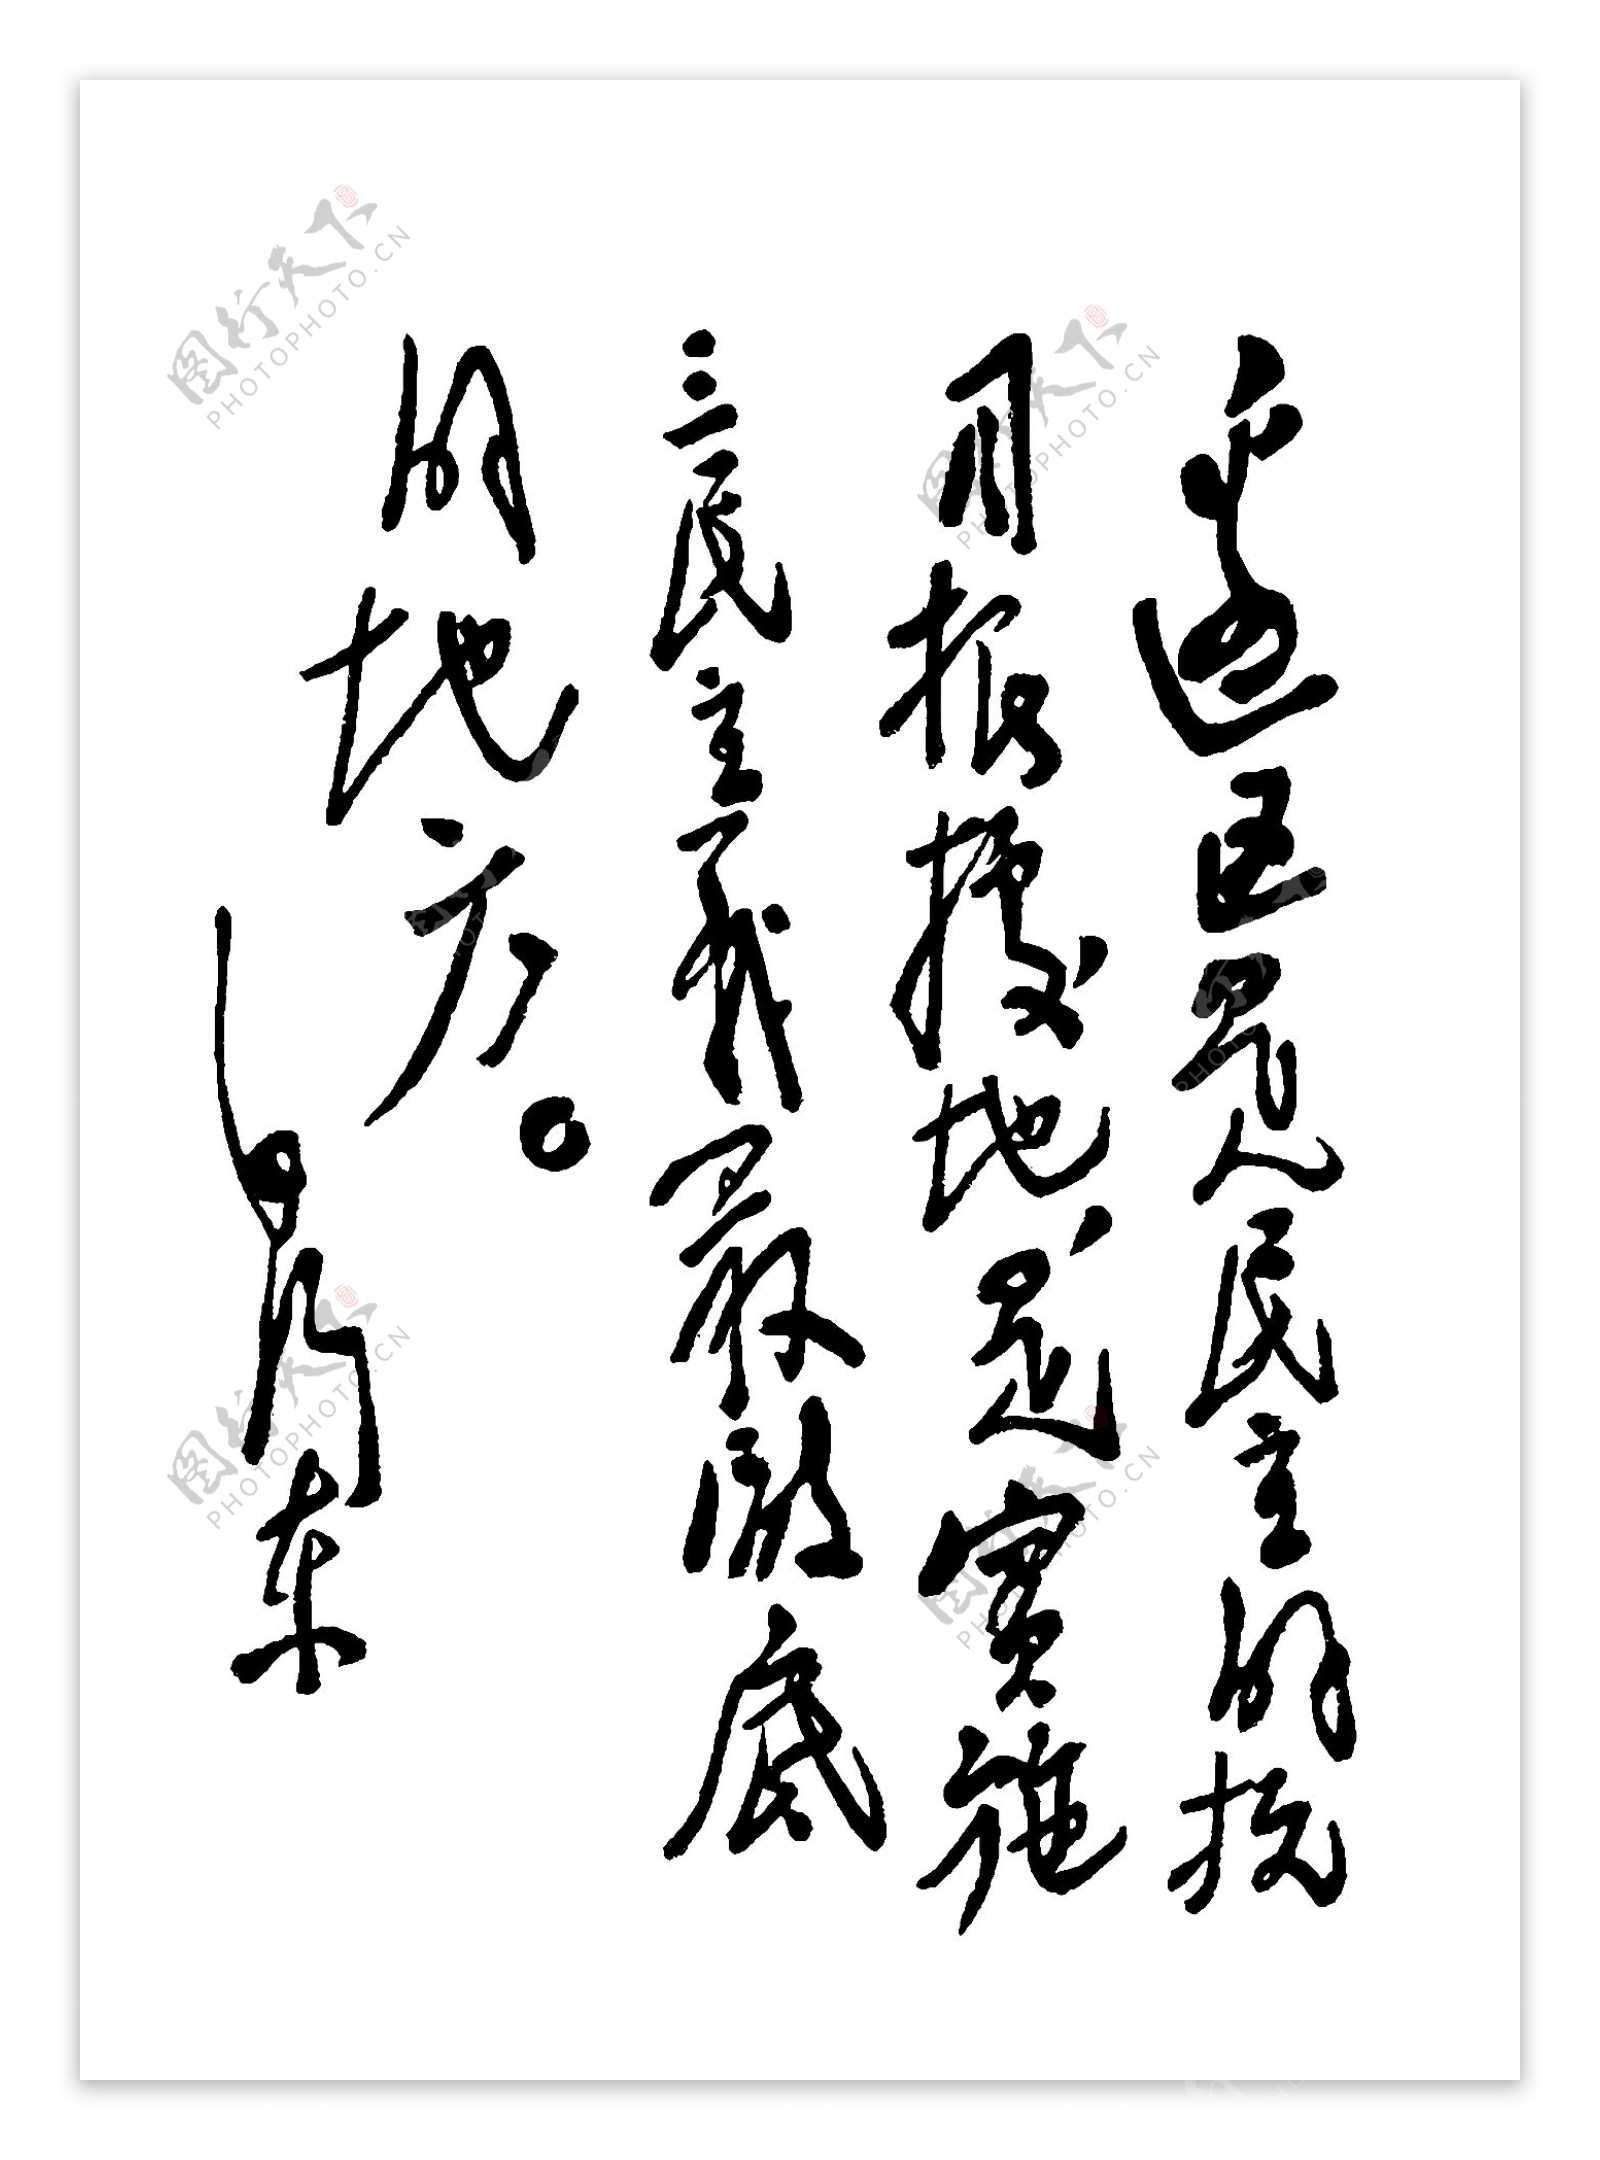 边区是民主的抗
日根據地，是實施
三民主義最澈底
的地方。
毛泽东
图行天下
PHOTOPHOTO.CN
图行天下
PHOTOPHOTO.CN
图行天下
PHOTOPHOTO.CN
图行天下
PHOTOPHOTO.CN